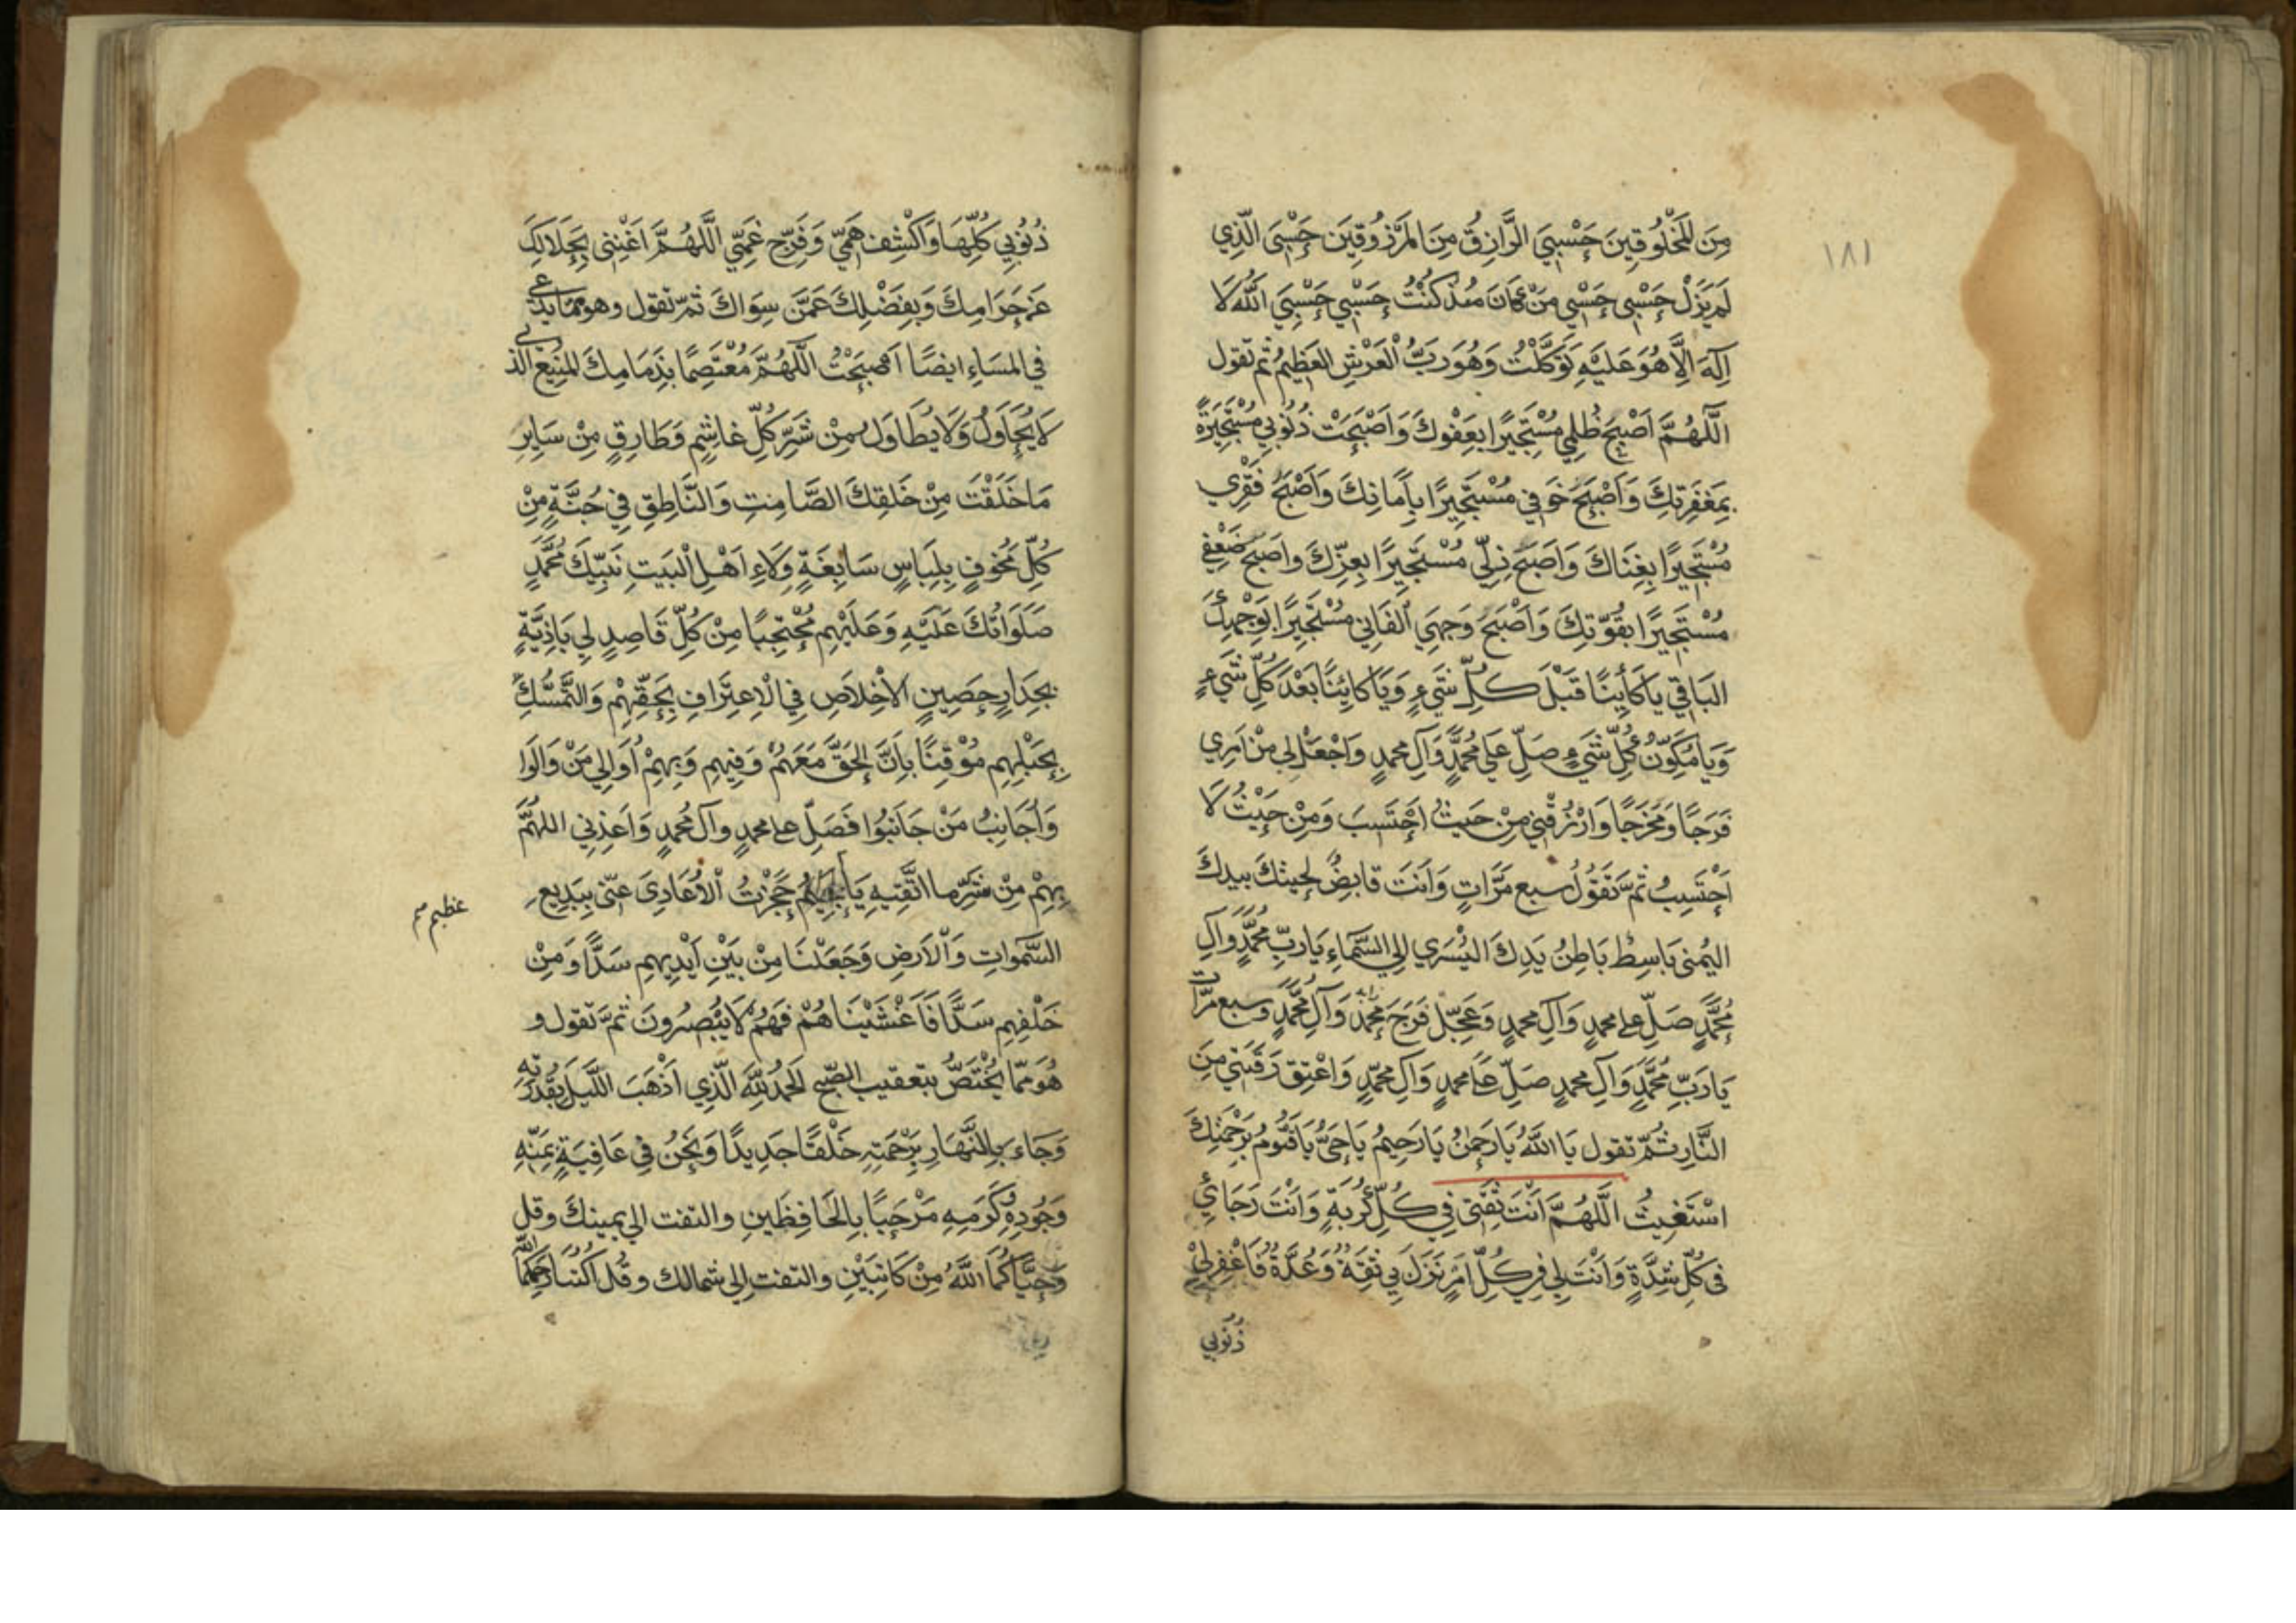 ١٨١
مِنَ الْمَخْلُوقِينَ حَسْبِيَ الرَّازِقُ مِنَ المَرْزُوقِينَ حَسْبِيَ الَّذِي
لَمْ يَزَلْ حَسْبِي حَسْبِي مَنْ كَانَ مُنْذُ كُنْتُ حَسْبِي حَسْبِيَ اللّٰهُ لَا
اِلٰهَ اِلَّا هُوَ عَلَيْهِ تَوَكَّلْتُ وَهُوَ رَبُّ الْعَرْشِ العَظِيمُ ثم تقول
اَللّٰهُمَّ اَصْبَحَ ظُلْمِي مُسْتَجِيرًا بِعَفْوِكَ وَاَصْبَحَتْ ذُنُوبِي مُسْتَجِيرَةً
بِمَغْفِرَتِكَ وَاَصْبَحَ خَوفِي مُسْتَجِيرًا بِاَمَانِكَ وَاَصْبَحَ فَقْرِي
مُسْتَجِيرًا بِغِنَاكَ وَاَصْبَحَ ذِلِّي مُسْتَجِيرًا بِعِزِّكَ واَصبَحَ ضَعْفِي
مُسْتَجِيرًا بِقُوَّتِكَ وَاَصْبَحَ وَجهِيَ الفَانِي مُسْتَجِيرًا بِوَجْهِكَ
البَاقِي يَا كَائِنًا قَبْلَ كُلِّ شَيْءٍ وَيَا كَائِنًا بَعْدَ كُلِّ شَيْءٍ
وَيَا مُكَوِّنَ كُلِّ شَيْءٍ صَلِّ عَلَى مُحَمَّدٍ وَآلِ محمدٍ وَاجْعَلْ لِي مِنْ اَمرِي
فَرَجًا وَمَخْرَجًا وَارْزُقْنِي مِنْ حَيثُ اَحْتَسِبُ وَمِنْ حَيْثُ لَا
اَحْتَسِبُ ثُمَّ تَقُولُ سبع مَرَّاتٍ وَاَنتَ قابِضٌ لِحيتكَ بيدكَ
اليُمنى بَاسِطٌ بَاطِنُ يَدِكَ اليُسْرَي اِلي السَّمَاءِ يَارَبِّ مُحَمَّدٍ وَآلِ
مُحَمَّدٍ صَلِّ على محمدٍ وَآلِ محمدٍ وَعَجِّلْ فَرَجَ مُحَمَّدٍ وَآلِ مُحَمَّدٍ وسبع مرّات
يَارَبِّ مُحَمَّدٍ وَآلِ محمدٍ صَلِّ عَلى محمدٍ وَآلِ محمّدٍ وَاعْتِقْ رَقَبَتِي مِنَ
النَّارِ ثُمّ تقول يَا اَللّٰهُ يَا رَحمٰنُ يَا رَحِيمُ يَا حَيُّ يَا قَيُّومُ بِرَحْمَتِكَ
اَسْتَغِيثُ اَللّٰهُمَّ اَنْتَ ثِقَتِي فِي كُلِّ كُرْبَةٍ وَاَنْتَ رَجَائِي
فِى كُلِّ شِدَّةٍ وَاَنْتَ لِي فِي كُلِّ اَمْرٍ نَزَلَ بِي ثِقَةٌ وَعُدَّةٌ فَاغْفِرلِي
ذُنُوبِي
ذُنُوبِي كُلَّهَا وَاكْشِفْ هَمِّي وَفَرِّج غَمِّي اَللّٰهُمَّ اَغْنِنِى بِحَلَالِكَ
عَن حَرَامِكَ وَبِفَضْلِكَ عَمَّنْ سِوَاكَ ثمّ تقول وهو ممّا يدعى
فِي المَسَاءِ ايضًا اَصْبَحْتُ اَللّٰهُمَّ مُعْتَصِمًا بِذِمَامِكَ المَنِيعِ الَّذِي
لَا يُحَاوَلُ وَلَا يُطَاوَلُ مِنْ شَرِّ كُلِّ غَاشِمٍ وَطَارِقٍ مِنْ سَايِرِ
مَا خَلَقْتَ مِنْ خَلقِكَ الصَّامِتِ وَالنَّاطِقِ فِي جُنَّةٍ مِنْ
كُلِّ مَخُوفٍ بِلِبَاسٍ سَابِغَةٍ وَلَاءِ اَهْلِ الْبَيتِ نَبِيِّكَ مُحَمَّدٍ
صَلَوَاتُكَ عَلَيْهِ وَعَلَيْهِم مُحْتَجِبًا مِنْ كُلِّ قَاصِدٍ لِي بِاَذِيَّةٍ
بِجِدَارٍ حَصِينِ الاِخْلَاصِ فِي الْاِعتِرَافِ بِحَقِّهِمْ وَالتَّمَسُّكِ
بِحَبْلِهِم مُوْقِنًا بِاَنَّ الحَقَّ مَعَهُمْ وَفِيهِم وَبِهِمْ اُوَالِي مَنْ وَالَوا
وَاُجَانِبُ مَنْ جَانَبُوا فَصَلِّ على محمدٍ وآل مُحمدٍ وَاَعِذْنِي اللهُمَّ
بِهِمْ مِنْ شَرِّ ما اتَّقِيهِ يَا عَظِيمُ حَجَزْتُ الاَعَادِيَ عَنِّى بِبَدِيعِ
عظيم
السَّموَاتِ وَالْاَرضِ وَجَعَلْنَا مِنْ بَيْنِ اَيْدِيهِم سَدًّا وَمِنْ
خَلْفِهِم سَدًّا فَاَغْشَيْنَاهُمْ فَهُمْ لَا يُبْصِرُونَ ثمَّ تقول و
هُوَ ممّا يُخْتَصُّ بتعقيب الصّبح اَلحَمدُ لِلّٰهِ الَّذِي اَذْهَبَ اللَّيلَ بِقُدْرَتِهِ
وَجَاءَ بِالنَّهَارِ بِرَحْمَتِهِ خَلْقًا جَدِيدًا وَنَحْنُ فِي عَافِيَةٍ بِمَنِّهِ
وَجُودِهِ وَكَرَمِهِ مَرْحَبًا بِالحَافِظَينِ والتفت الي يمينك وقل
وَحَيَّاكُمَا اللّٰهُ مِنْ كَاتِبَيْنِ والتفت اِلى شمالك وقُل اكْتُبَا رَحِمَكُمَا اللّٰهُ